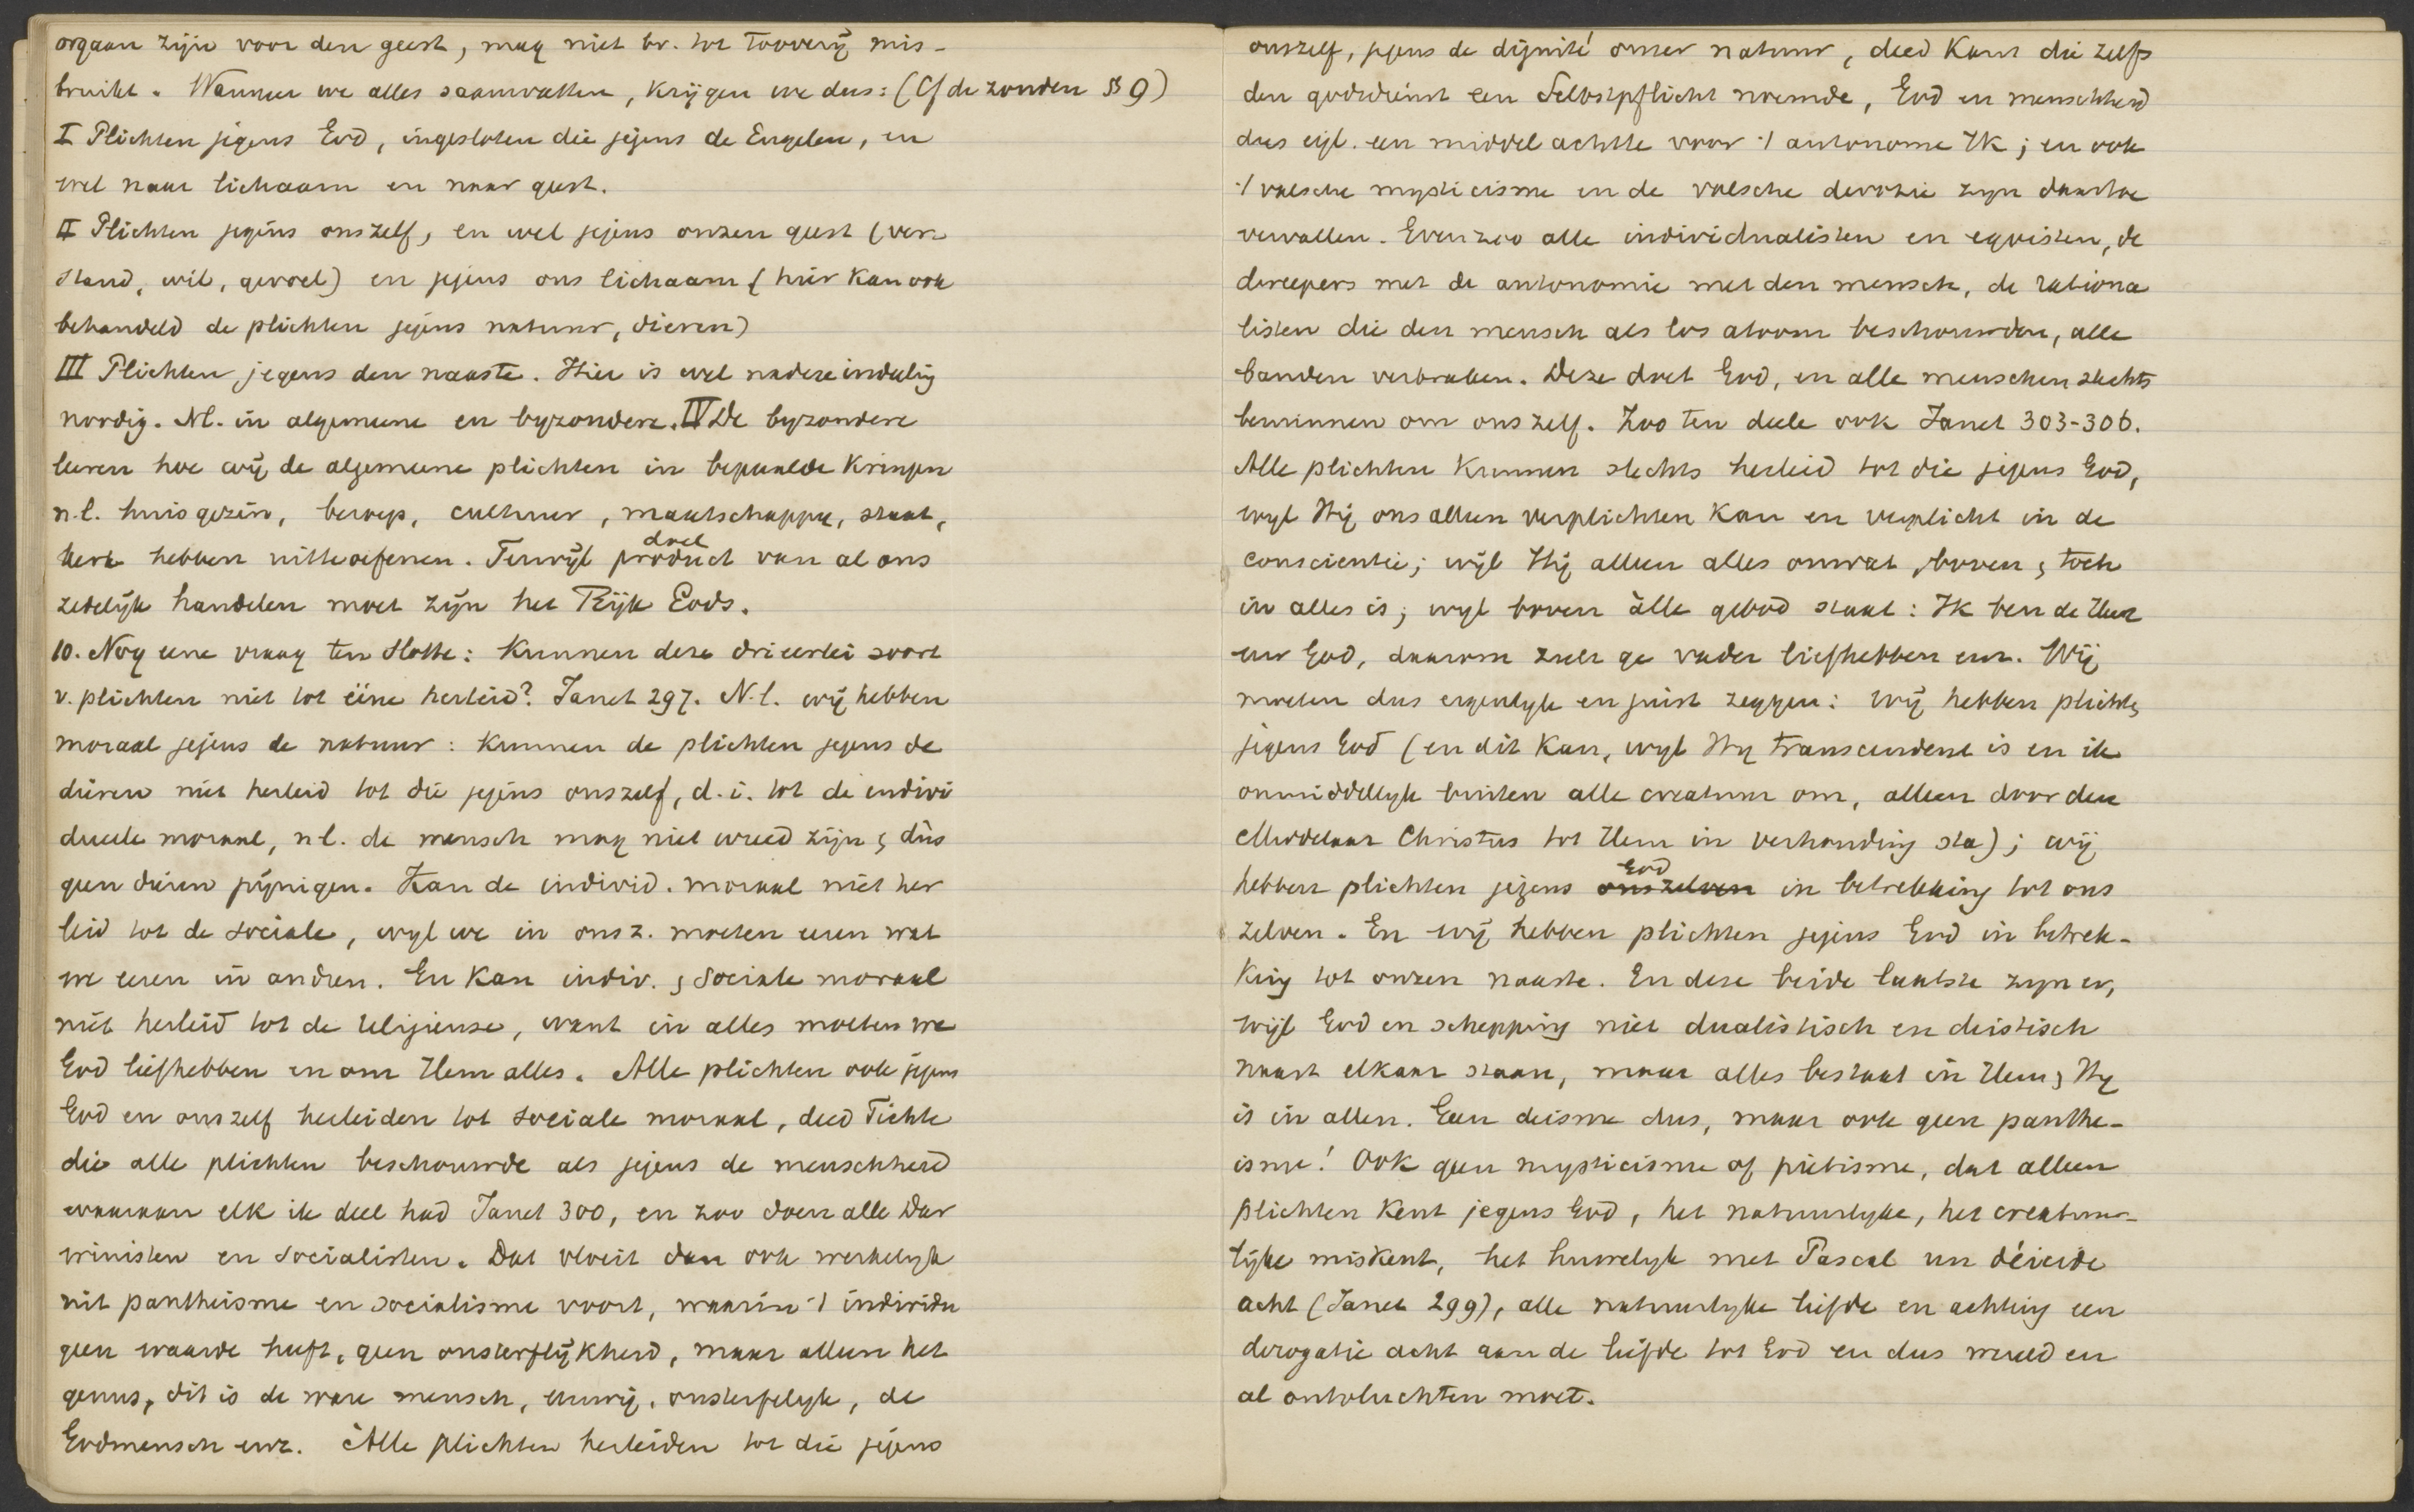 orgaan zijn voor den geest, mag niet bv. tot tooverij mis-
bruikt. Wanneer we alles saamvatten, krijgen we dus: (Cf de zonden § 9)
I Plichten jegens God, ingesloten die jegens de Engelen, en
wel naar lichaam en naar geest.
II Plichten jegens onszelf, en wel jegens onzen geest (ver-
stand, wil, gevoel) en jegens ons lichaam (hier kan ook
behandeld de plichten jegens natuur, dieren)
III Plichten jegens den naaste. Hier is wel nadere indeling
noodig. Nl. in algemeene en byzondere. IV De byzondere
leeren hoe wij de algemeene plichten in bepaalde kringen
n.l. huisgezin, beroep, cultuur, maatschappy, staat,
kerk hebben uitteoefenen. Terwijl product van al ons
doel
zedelijk handelen moet zijn het Rijk Gods.
10. Nog eene vraag ten slotte: kunnen deze drieerlei soort
v. plichten niet tot ééne herleid? Janet 297. N.l. wij hebben
moraal jegens de natuur: kunnen de plichten jegens de
dieren niet herleid tot die jegens onszelf, d.i. tot de indivi
dueele moraal, nl. de mensch mag niet wreed zijn, dus
geen dieren pijnigen. Kan de individ. moraal niet her
leid tot de sociale, wyl we in onsz. moeten eeren wat
we eeren in andren. En kan indiv. & sociale moraal
niet herleid tot de religieuse, want in alles moeten we
God liefhebben en om Hem alles. Alle plichten ook jegens
God en onszelf herleiden tot sociale moraal, deed Fichte
die alle plichten beschouwde als jegens de menschheid
waaraan elk ik deel had Janet 300, en zoo doen alle Dar
winisten en socialisten. Dat vloeit dan ook werkelyk
uit pantheisme en socialisme voort, waarin 't individu
geen waarde heeft, geen onsterflijkheid, maar alleen het
genus, dit is de ware mensch, eeuwig, onsterfelyk, de
Godmensch enz. Alle plichten herleiden tot die jegens
onszelf, jegens de dignité onzer natuur, deed Kant die zelfs
den godsdienst een Selbstpflicht noemde, God en menschheid
dus eigl. een middel achtte voor 't autonome Ik; en ook
't valsche mysticisme en de valsche devotie zyn daartoe
vervallen. Evenzoo alle individualisten en egoisten, de
dweepers met de autonomie met den mensch, de rationa
listen die den mensch als los atoom beschouwden, alle
banden verbraken. Deze doet God, en alle menschen slechts
beminnen om onszelf. Zoo ten deele ook Janet 303-306.
Alle plichten kunnen slechts herleid tot die jegens God,
wyl Hij ons alleen verplichten kan en verplicht in de
conscientie; wijl Hij alleen alles omvat, boven & toch
in alles is; wyl boven álle gebod staat: Ik ben de Heer
uw God, daarom zult ge vader liefhebben enz. Wij
moeten dus eigenlyk en juist zeggen: wij hebben plichten
jegens God (en dit kan, wyl Hy transcendent is en ik
onmiddellyk buiten alle creatuur om, alleen door den
Middelaar Christus tot Hem in verhouding sta); wij
hebben plichten jegens onszelven in betrekking tot ons
God
zelven. En wij hebben plichten jegens God in betrek-
king tot onzen naaste. En deze beide laatste zyn er,
wijl God en schepping niet dualistisch en deistisch
naast elkaar staan, maar alles bestaat in Hem, Hy
is in allen. Geen deisme dus, maar ook geen panthe-
isme! Ook geen mysticisme of piëtisme, dat alleen
plichten kent jegens God, het natuurlyke, het creatuur-
lijke miskent, het huwelyk met Pascal un déicide
acht (Janet 299), alle natuurlyke liefde en achting een
derogatie acht aan de liefde tot God en dus wereld en
al ontvluchten moet.